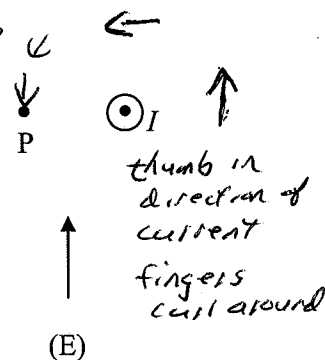 I
P
thumb in
direction of
current
fingers
curl around
(E)